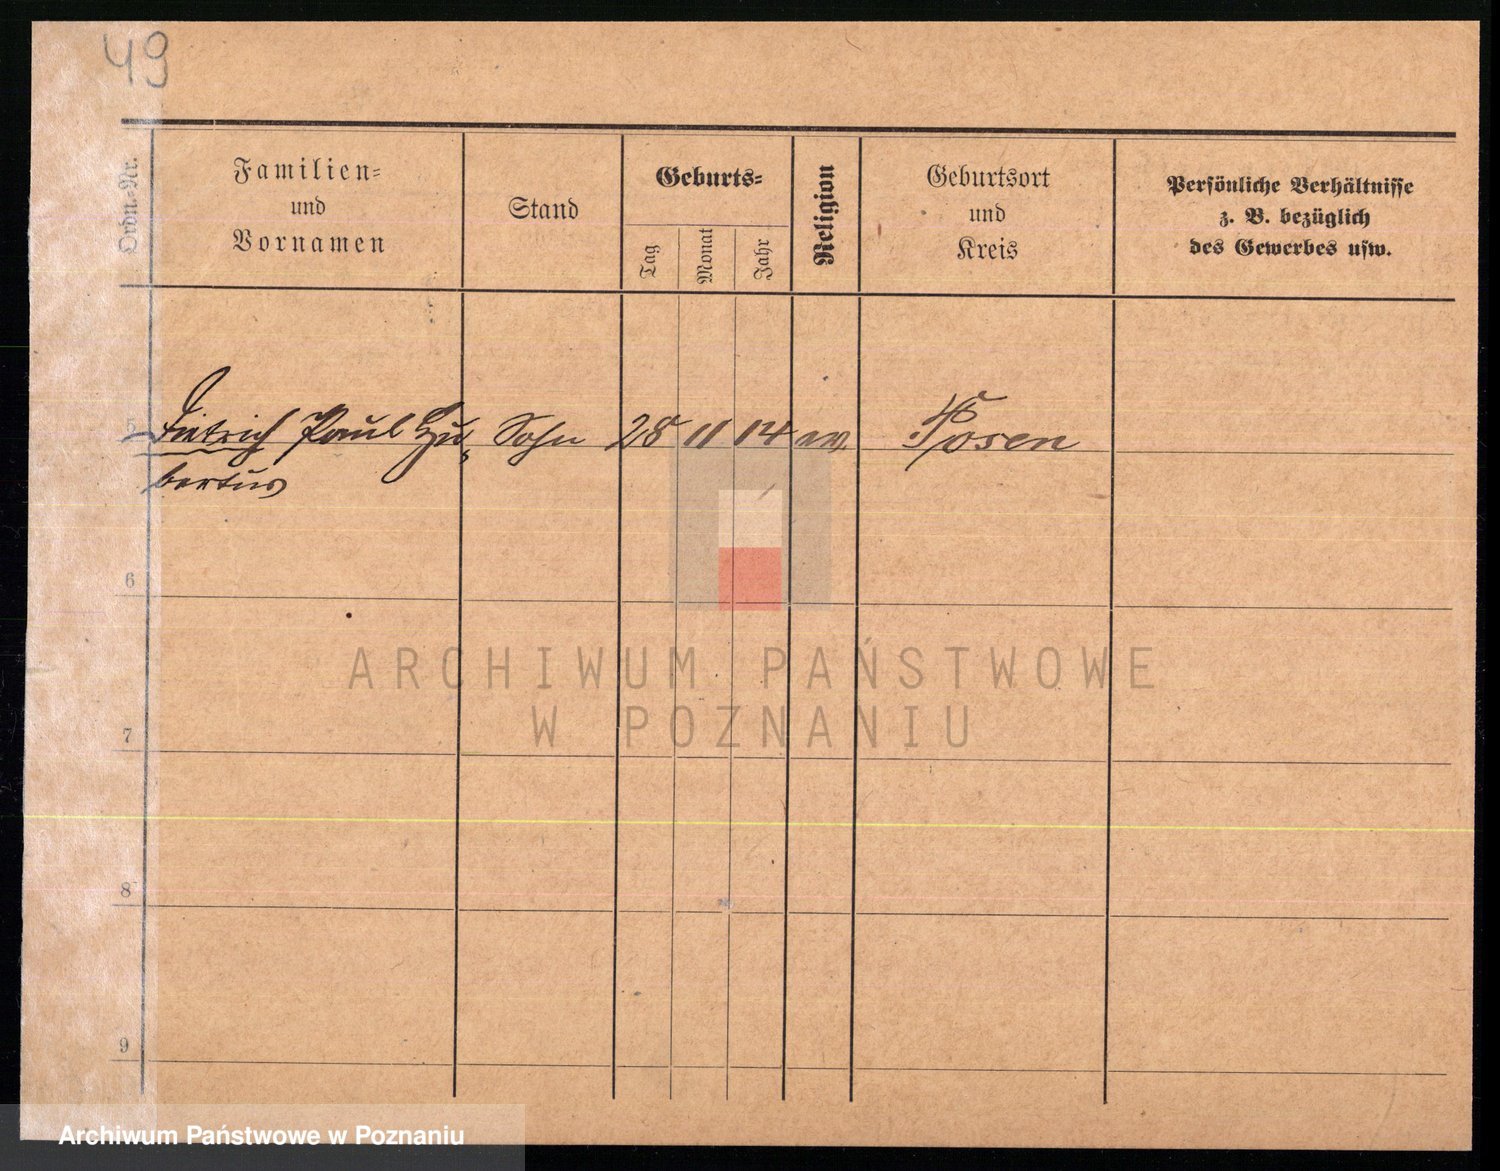 49
Ordn.-Nr.
Familien-
und
Vornamen
Stand
Geburts-
Tag
Monat
Jahr
Religion
Geburtsort
und
Kreis
Persönliche Verhältnisse
z. B. bezüglich
des Gewerbes usw.
5 Dietrich Paul Hu- Sohn 28 11 14 ev. Posen
bertus
6
7
8
9
ARCHIWUM PAŃSTWOWE
W POZNANIU
Archiwum Państwowe w Poznaniu